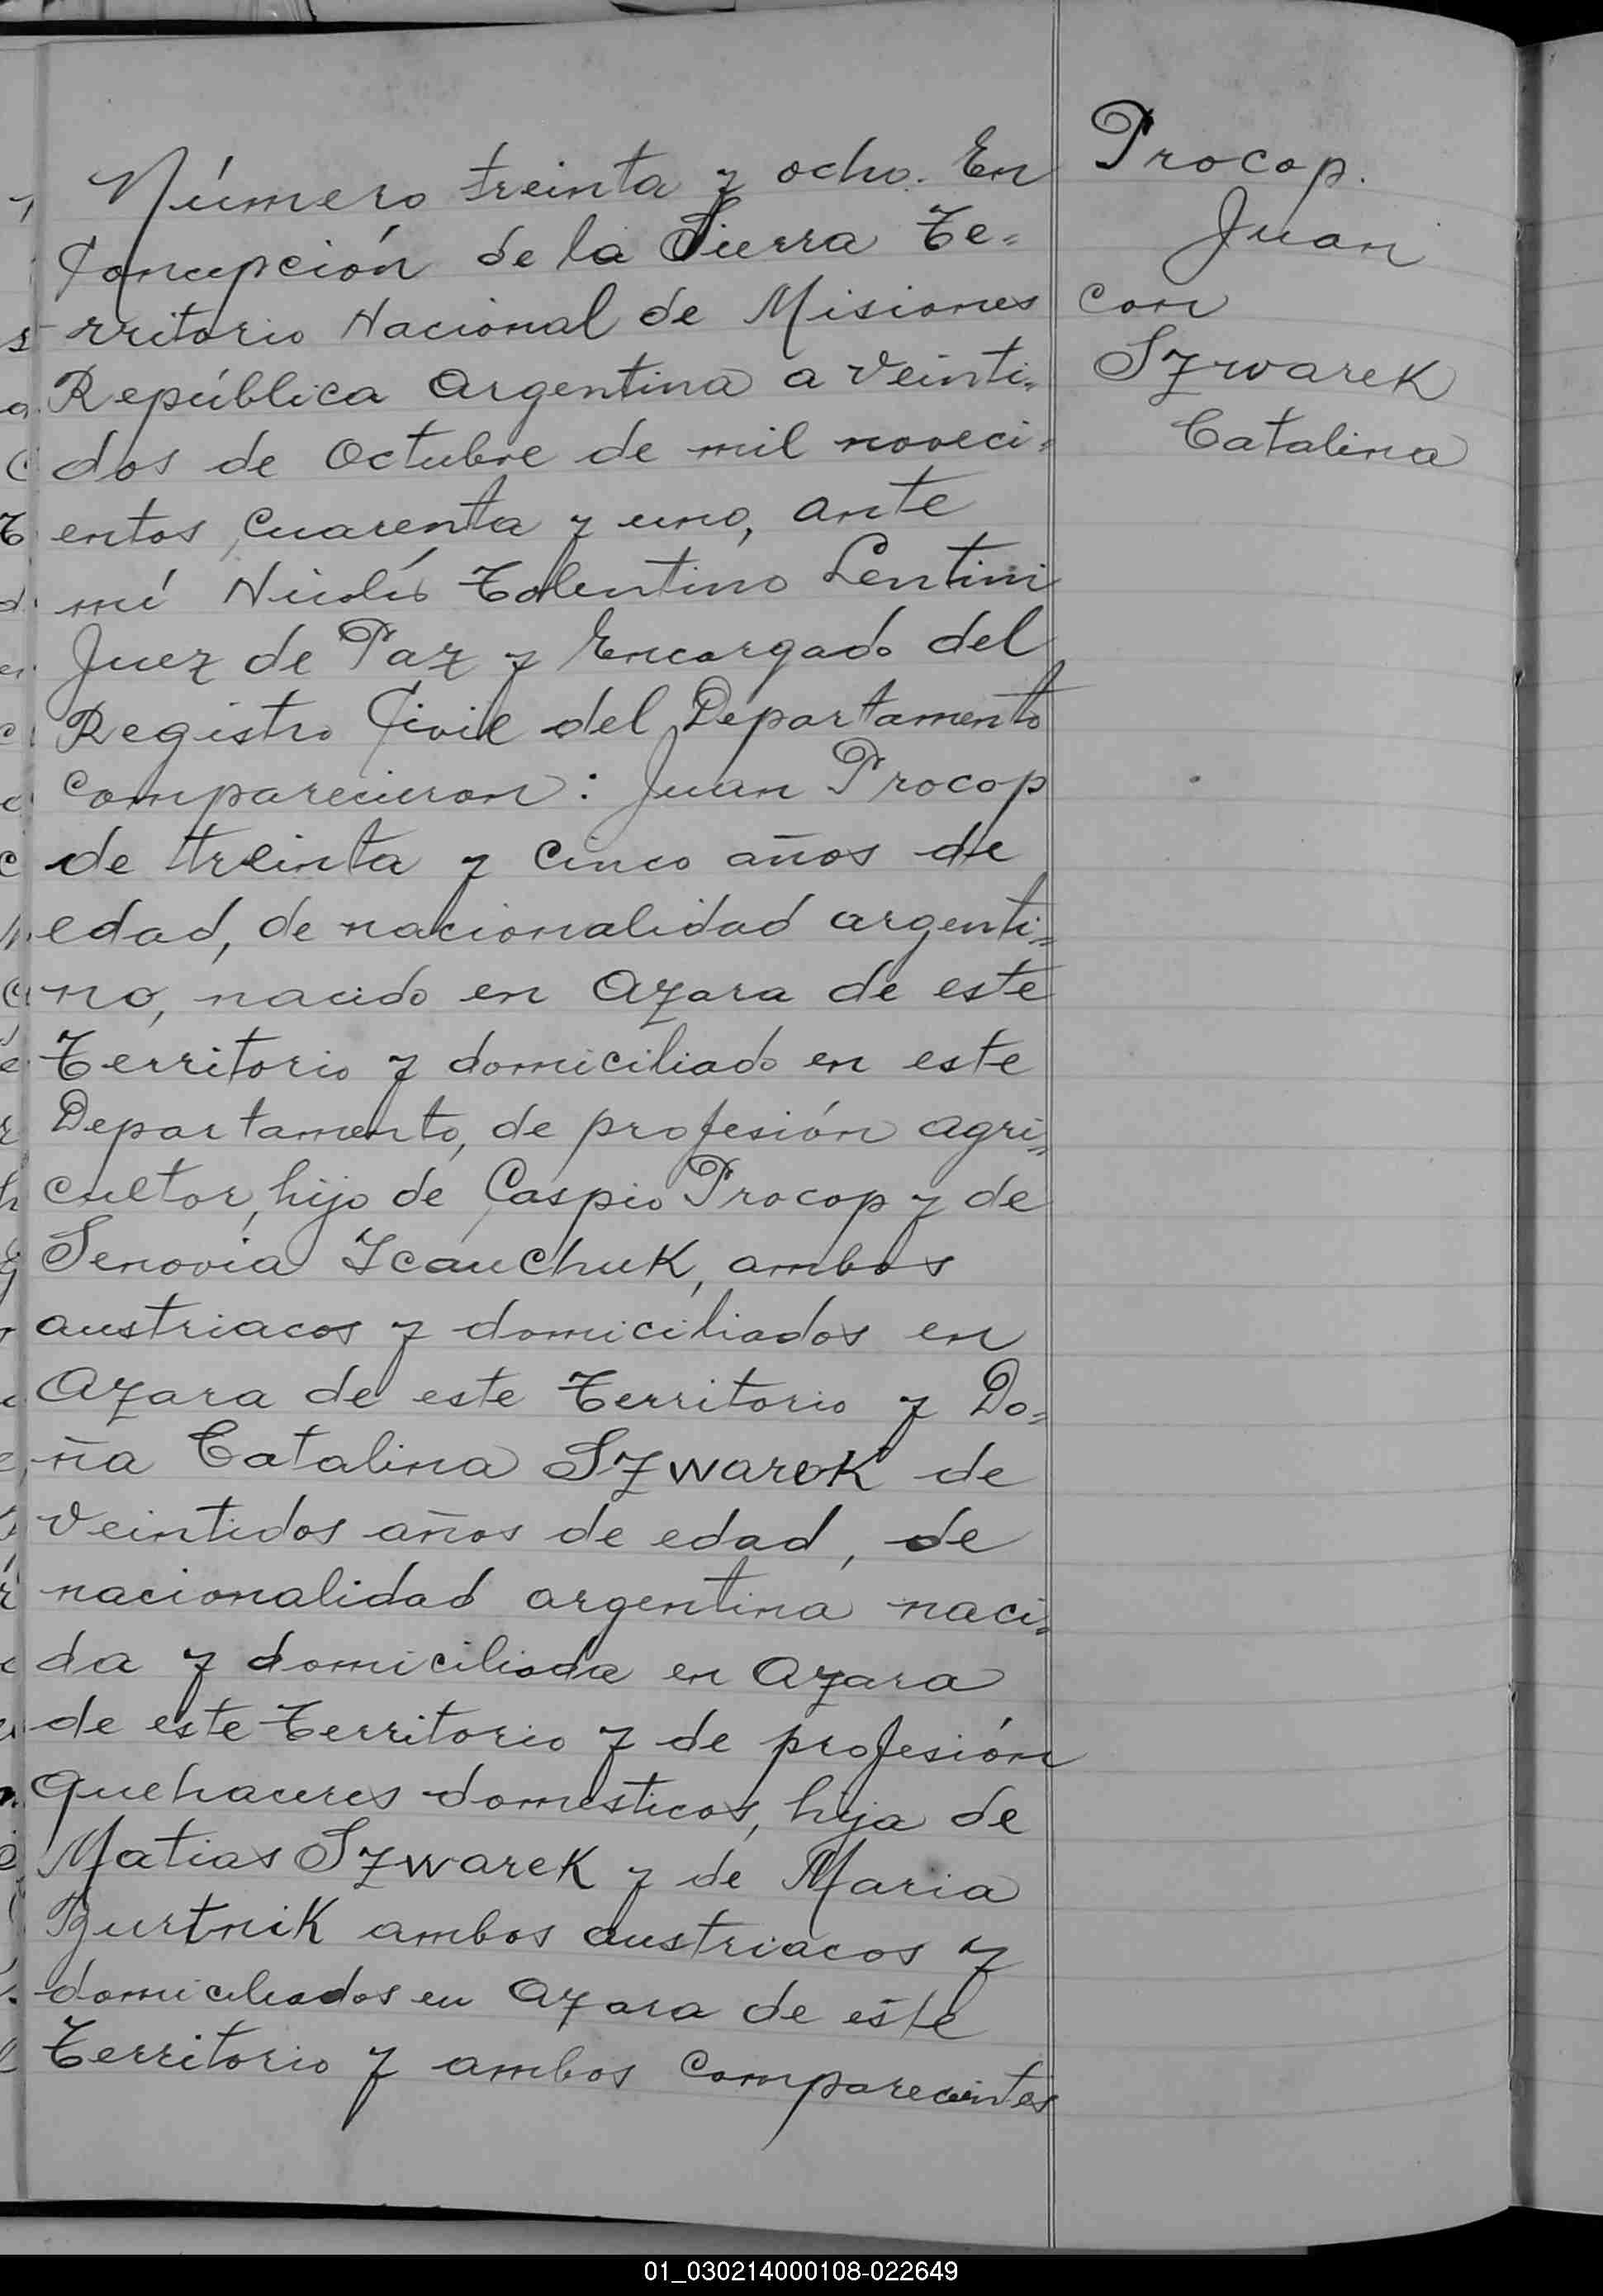 Número treinta y ocho. En
Concepción de la Sierra Te=
rritorio Nacional de Misiones
República Argentina a veinti=
dos de Octubre de mil noveci=
entos cuarenta y uno, ante
mí Nicolás Tolentino Lentini
Juez de Paz y Encargado del
Registro Civil del Departamento
comparecieron: Juan Procop
de treinta y cinco años de
edad, de nacionalidad argenti=
no, nacido en Azara de este
Territorio y domiciliado en este
Departamento, de profesión agri=
cultor, hijo de Caspio Procop y de
Senovia IcauchuK, ambos
austriacos y domiciliados en
Azara de este Territorio y Do=
ña Catalina SzwareK de
veintidos años de edad, de
nacionalidad argentina naci=
da y domiciliada en Azara
de este Territorio y de profesión
quehaceres domesticos, hija de
Matias SzwareK y de Maria
BurtniK ambos austriacos y
domiciliados en Azara de este
Territorio y ambos comparecientes
Procop.
Juan
con
SzwareK
Catalina
01_030214000108-022649